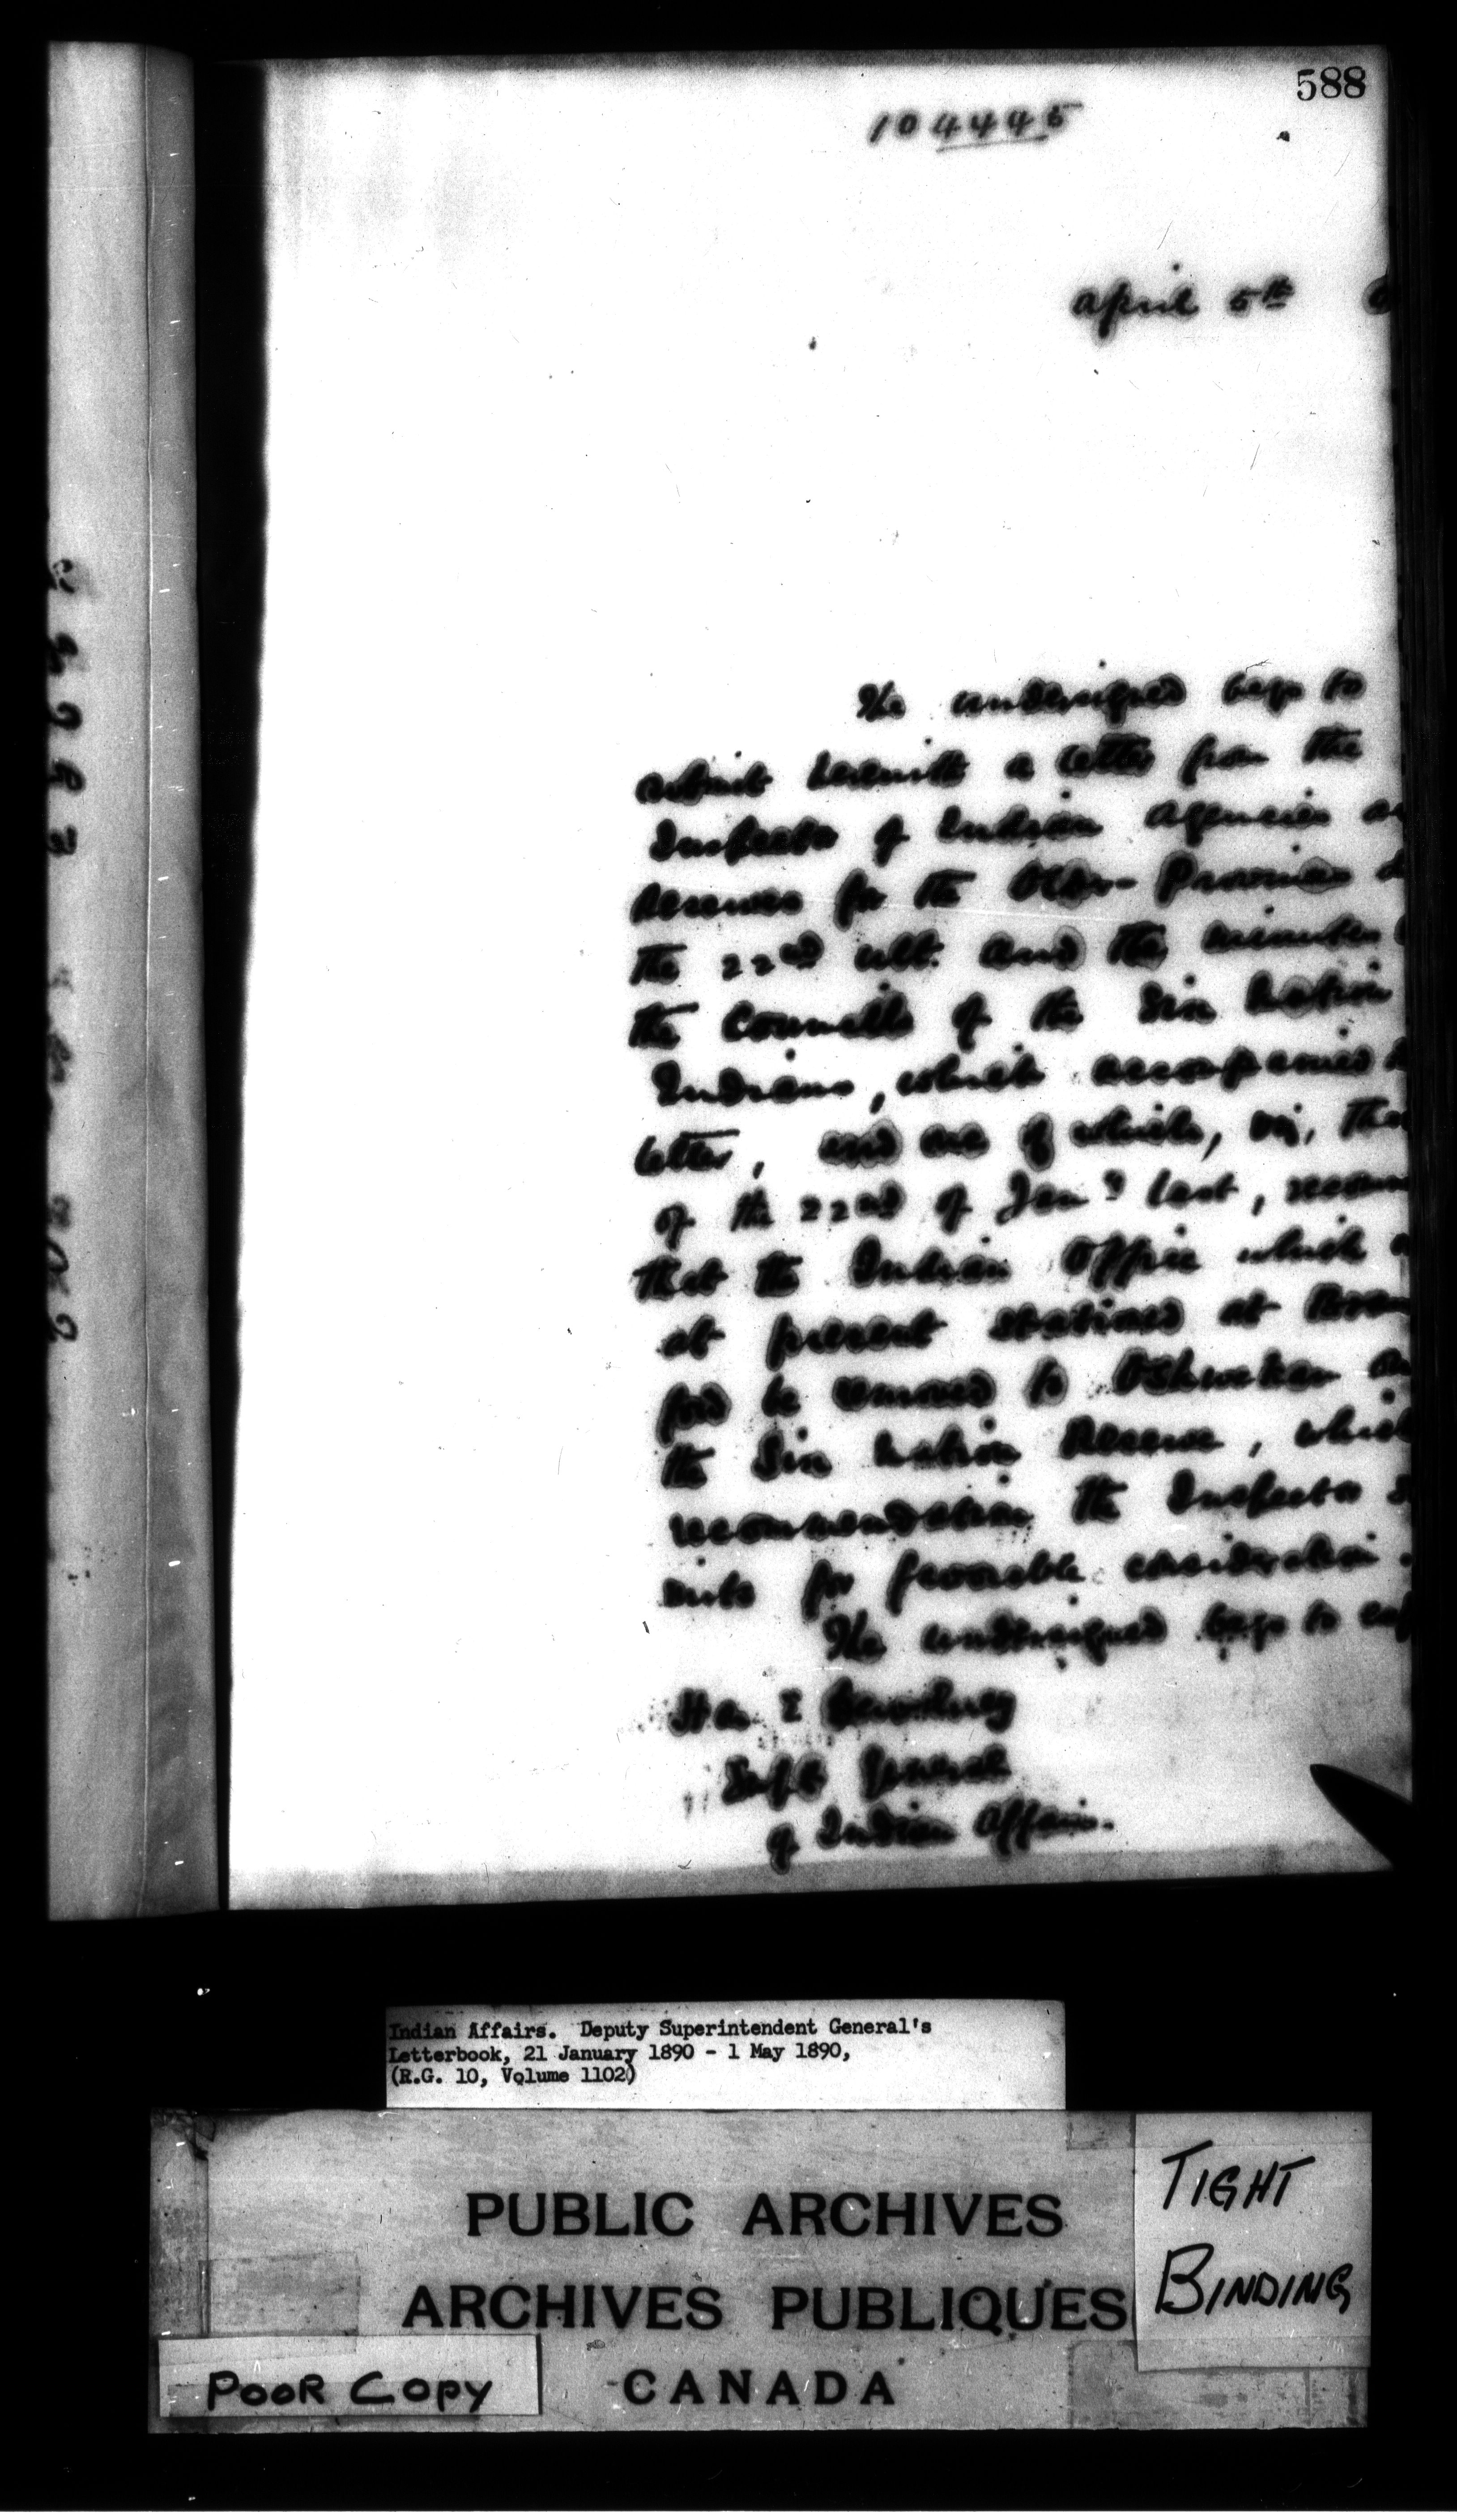 588
104445
April 5th
The undersigned begs to
submit herewith a letter from the
Inspector of Indian Agencies
Reserves for the Older Provinces
the 22nd ult. and the minutes
the Councils of the Six Nation
Indians, which accompanied
letter, and one of which, viz, that
of the 22nd of Jany last, recom
that the Indian Office which
at present stationed at Bran
ford be removed to Oshweken
the Six Nation Reserve, which
recommendation the Inspector
mits for favorable consideration.
The undersigned begs to
Hon. E Dewdney
Supt General
of Indian Affairs.
Indian Affairs. Deputy Superintendent General's
Letterbook, 21 January 1890 - 1 May 1890,
(R.G. 10, Volume 1102)
PUBLIC ARCHIVES
ARCHIVES PUBLIQUES
CANADA
TIGHT
BINDING
POOR COPY